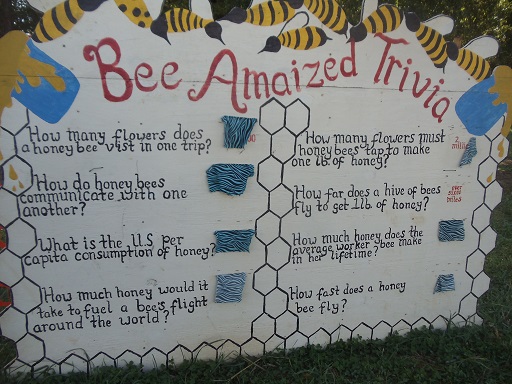 Bee Amaized Trivia
How many flowers does
a honey bee vist in one trip?
How do honey bees
communicate with one
another?
What is the U.S per
capita consumption of honey?
How much honey would it
take to fuel a bee's flight
around the world?
How many flowers must
honey bees tap to make
one lb of honey?
2
How far does a hive of bees
fly to get 1 lb. of honey?
over
55,000
miles
How much honey does the
average worker bee make
in her lifetime?
How fast does a honey
bee fly?